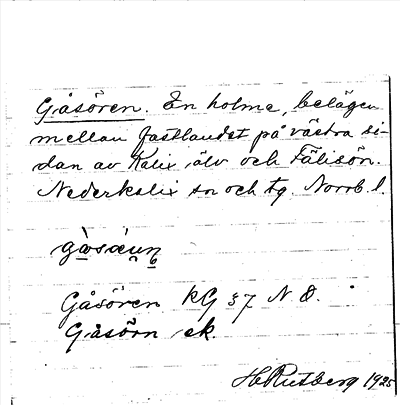 Gåsören. En holme, belägen
mellan fastlandet på västra si-
dan av Kalix älv och Fälisön.
Nederkalix sn och tg. Norrb. l.
Gåsören kG 37 N Ö.
Gåsörn ek.
H. Rutberg 1925